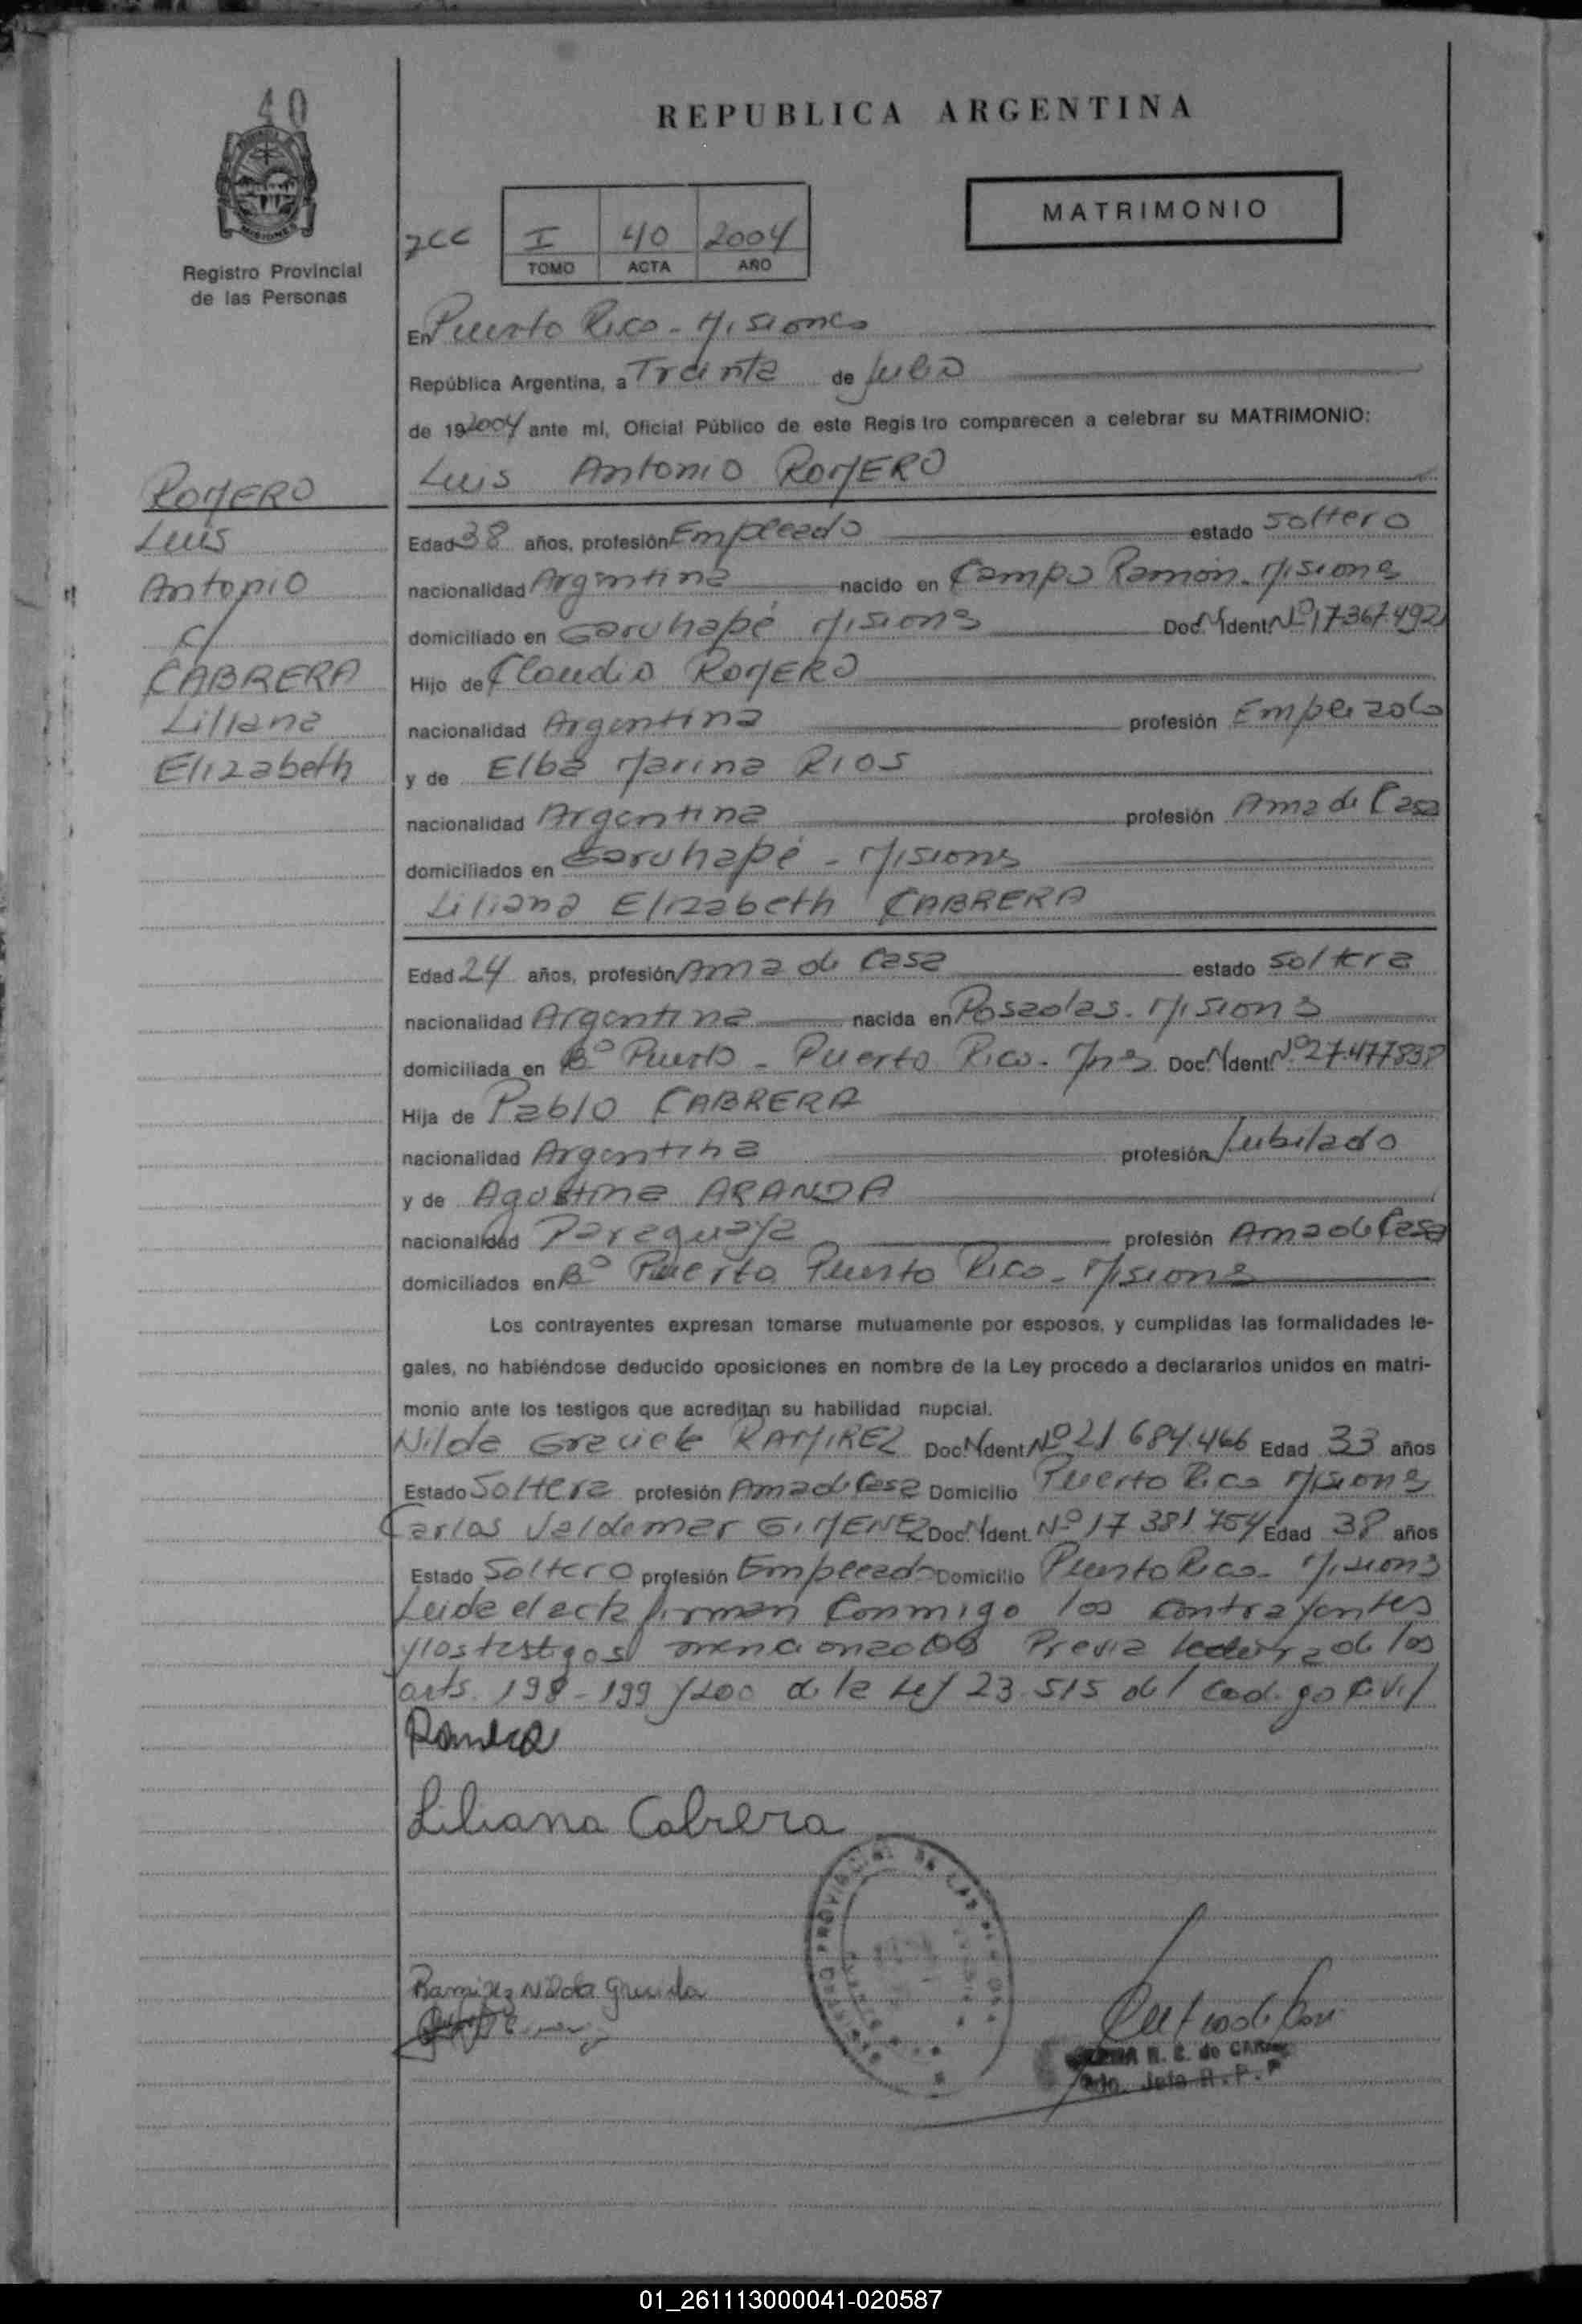 40
REPUBLICA ARGENTINA
MATRIMONIO
I 40 2004
TOMO ACTA AÑO
Registro Provincial
de las Personas
MISIONES
En Puerto Rico - Misiones
República Argentina, a Treinta de Julio
de 192004 ante mí, Oficial Público de este Registro comparecen a celebrar su MATRIMONIO:
Luis Antonio ROMERO
ROMERO
Luis
Antonio
c/
CABRERA
Liliana
Elizabeth
Edad 38 años, profesión Empleado estado soltero
nacionalidad Argentina nacido en Campo Ramón - Misiones
domiciliado en Garuhapé Misiones Doc. N Ident. Nº 17.367.492
Hijo de Claudio ROMERO
nacionalidad Argentina profesión Empleado
y de Elba Marina RIOS
nacionalidad Argentina profesión Ama de Casa
domiciliados en Garuhapé - Misiones
Liliana Elizabeth CABRERA
Edad 24 años, profesión Ama de Casa estado soltera
nacionalidad Argentina nacida en Posadas - Misiones
domiciliada en Bº Puerto - Puerto Rico - Mnes Doc. N Ident. Nº 27.477838
Hija de Pablo CABRERA
nacionalidad Argentina profesión Jubilado
y de Agustina ARANDA
nacionalidad Paraguaya profesión Ama de Casa
domiciliados en Bº Puerto Puerto Rico - Misiones
Los contrayentes expresan tomarse mutuamente por esposos, y cumplidas las formalidades le-
gales, no habiéndose deducido oposiciones en nombre de la Ley procedo a declararlos unidos en matri-
monio ante los testigos que acreditan su habilidad nupcial.
Nilda Graciela RAMIREZ Doc. N Ident. Nº 21 684.466 Edad 33 años
Estado Soltera profesión Ama de Casa Domicilio Puerto Rico Misiones
Carlos Valdemar GIMENEZ Doc. N Ident. Nº 17 381 754 Edad 38 años
Estado Soltero profesión Empleado Domicilio Puerto Rico - Misiones
Leida el acta firman Conmigo los contrayentes
y los testigos mencionados Previa lectura de los
arts. 198 - 199 y 200 de la Ley 23.515 del Codigo Civil
Romero
Liliana Cabrera
Ramirez Nilda Graciela
R. E. de
Jefa R. P. P
01_261113000041-020587